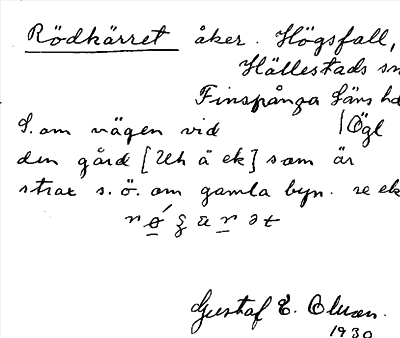 Rödkärret åker. Högsfall,
Hällestads sn
Finspånga läns hd
S. om vägen vid /Ögl
den gård [Uh ä ek] som är
strax s. ö. om gamla byn. se ek
Gustaf E. Olson.
1930